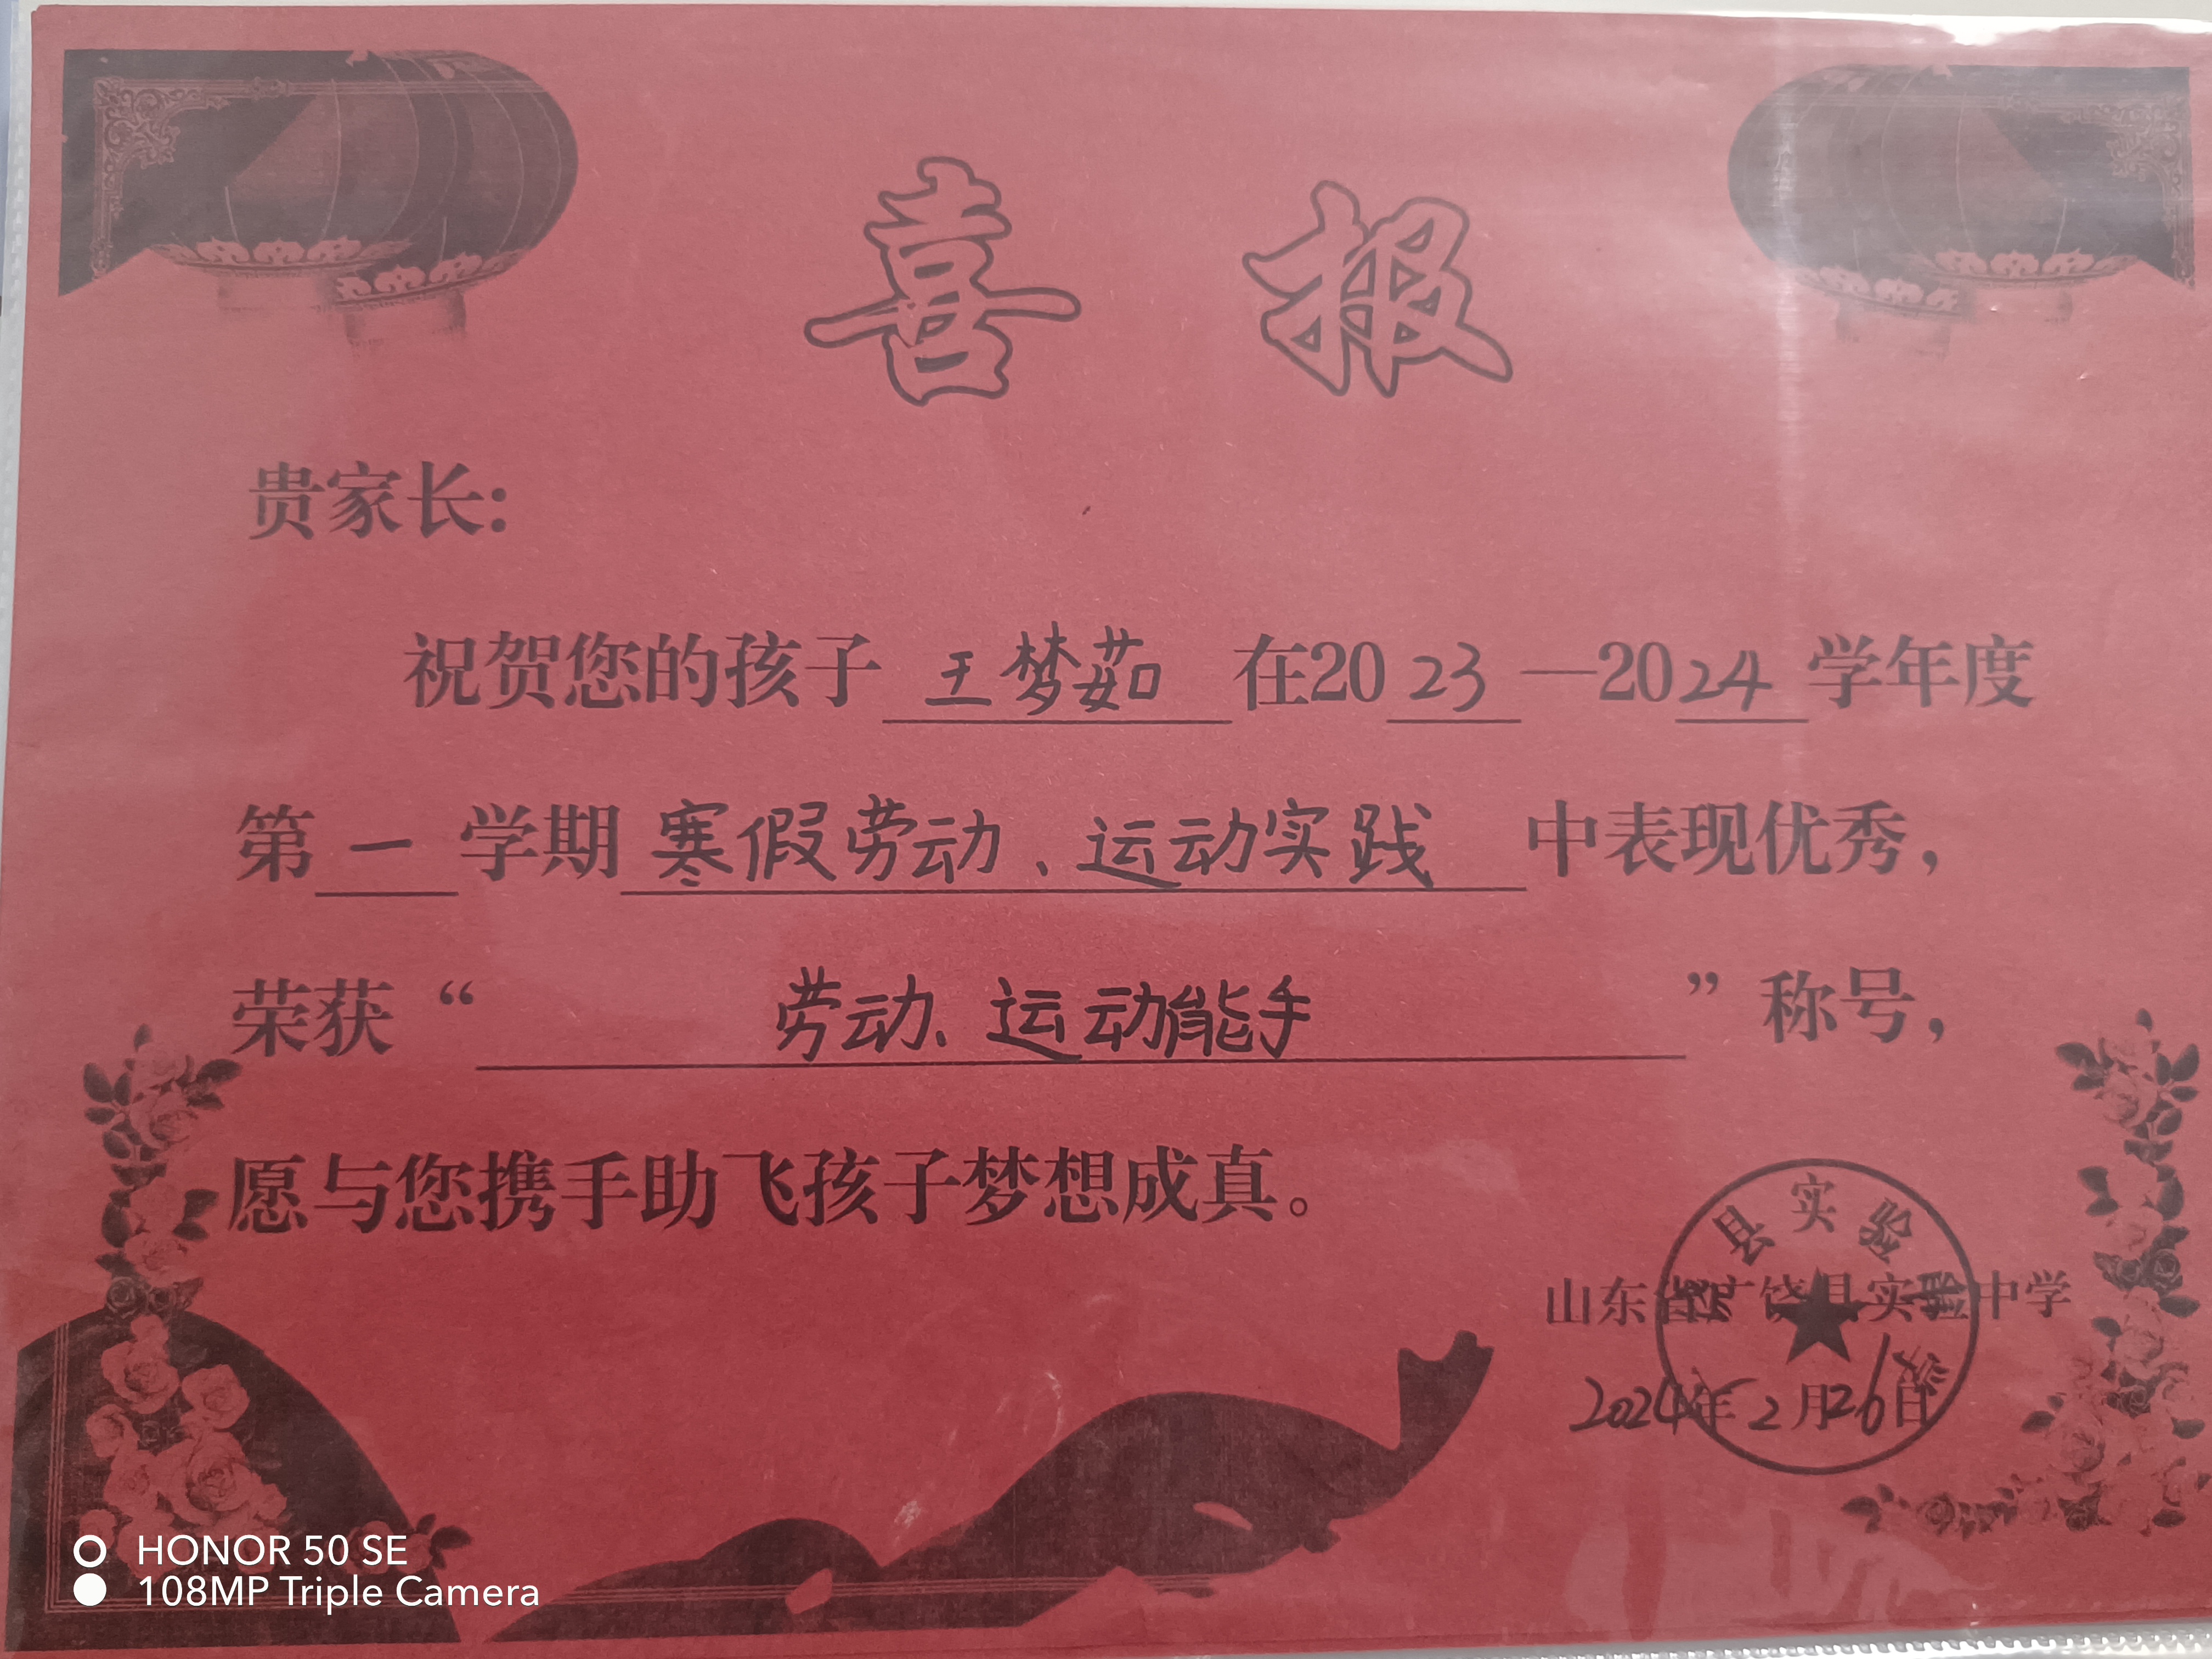 喜报
贵家长:
祝贺您的孩子 王梦茹 在2023—2024学年度
第一学期寒假劳动、运动实践中表现优秀,
荣获“劳动、运动能手”称号,
愿与您携手助飞孩子梦想成真。
县实验
山东省广饶县实验中学
2024年2月26日
HONOR 50 SE
108MP Triple Camera